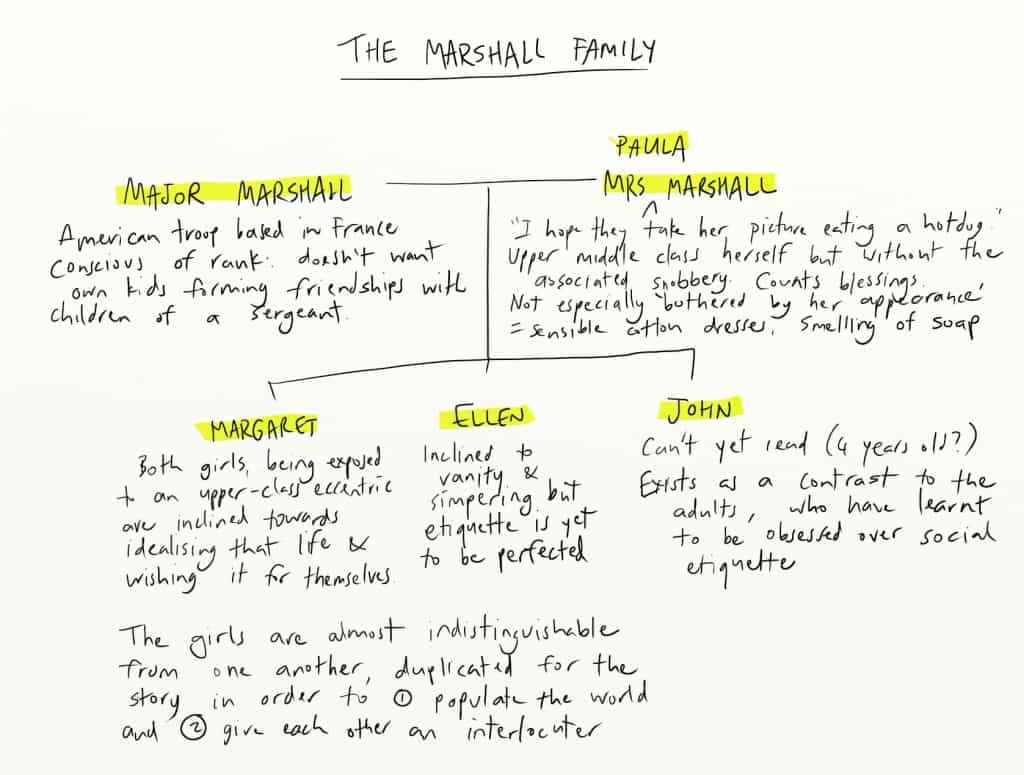 THE MARSHALL FAMILY
MAJOR MARSHALL
American troop based in France
Conscious of rank: doesn't want
own kids forming friendships with
children of a sergeant.
PAULA
MRS MARSHALL
"I hope they take her picture eating a hotdog."
Upper middle class herself but without the
associated snobbery. Counts blessings.
Not especially 'bothered by her appearance'
= sensible cotton dresses, smelling of soap
MARGARET
Both girls, being exposed
to an upper-class eccentric
are inclined towards
idealising that life &
wishing it for themselves.
ELLEN
Inclined to
vanity &
simpering but
etiquette is yet
to be perfected
JOHN
Can't yet read (4 years old?)
Exists as a contrast to the
adults, who have learnt
to be obsessed over social
etiquette
The girls are almost indistinguishable
from one another, duplicated for the
story in order to ① populate the world
and ② give each other an interlocuter